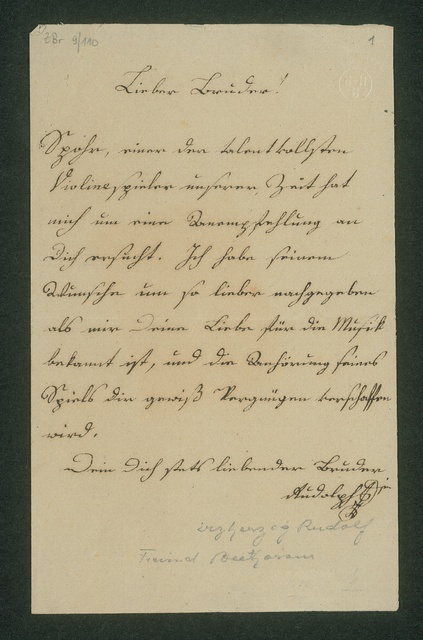 ZBr 9/110
1
Lieber Bruder!
Spohr, einer der talentvollsten
Violinespieler unserer Zeit hat
mich um eine Anempfehlung an
Dich ersucht. Ich habe seinem
Wunsche um so lieber nachgegeben
als mir Deine Liebe für die Musik
bekannt ist, und die Anhörung seines
Spiels dir gewiß Vergnügen verschaffen
wird.
Dein Dich stets liebender Bruder
Rudolph
Erzherzog Rudolf
Freund Beethovens